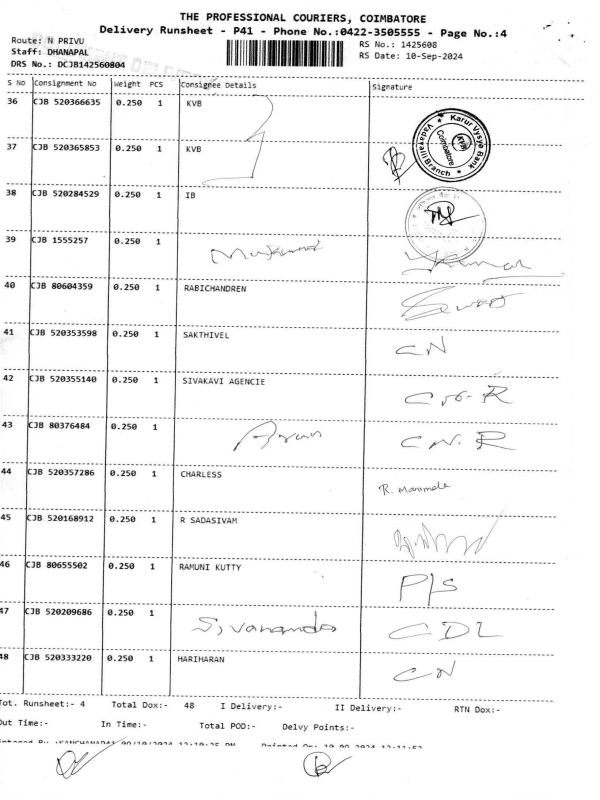 THE PROFESSIONAL COURIERS, COIMBATORE
Delivery Runsheet - P41 - Phone No.:0422-3505555 - Page No.:4
Route: N PRIVU
RS No.: 1425608
Staff: DHANAPAL
RS Date: 10-Sep-2024
DRS No.: DCJB142560804
S No Consignment No Weight PCS Consignee Details Signature
36 CJB 520366635 0.250 1 KVB
Karur Vysya Bank
Coimbatore
Vadavalli Branch
37 CJB 520365853 0.250 1 KVB
38 CJB 520284529 0.250 1 IB
39 CJB 1555257 0.250 1
40 CJB 80604359 0.250 1 RABICHANDREN
41 CJB 520353598 0.250 1 SAKTHIVEL CN
42 CJB 520355140 0.250 1 SIVAKAVI AGENCIE
43 CJB 80376484 0.250 1 CN.R
44 CJB 520357286 0.250 1 CHARLESS
45 CJB 520168912 0.250 1 R SADASIVAM
46 CJB 80655502 0.250 1 RAMUNI KUTTY P/S
47 CJB 520209686 0.250 1 CDL
48 CJB 520333220 0.250 1 HARIHARAN CN
Tot. Runsheet:- 4 Total Dox:- 48 I Delivery:- II Delivery:- RTN Dox:-
Out Time:- In Time:- Total POD:- Delvy Points:-